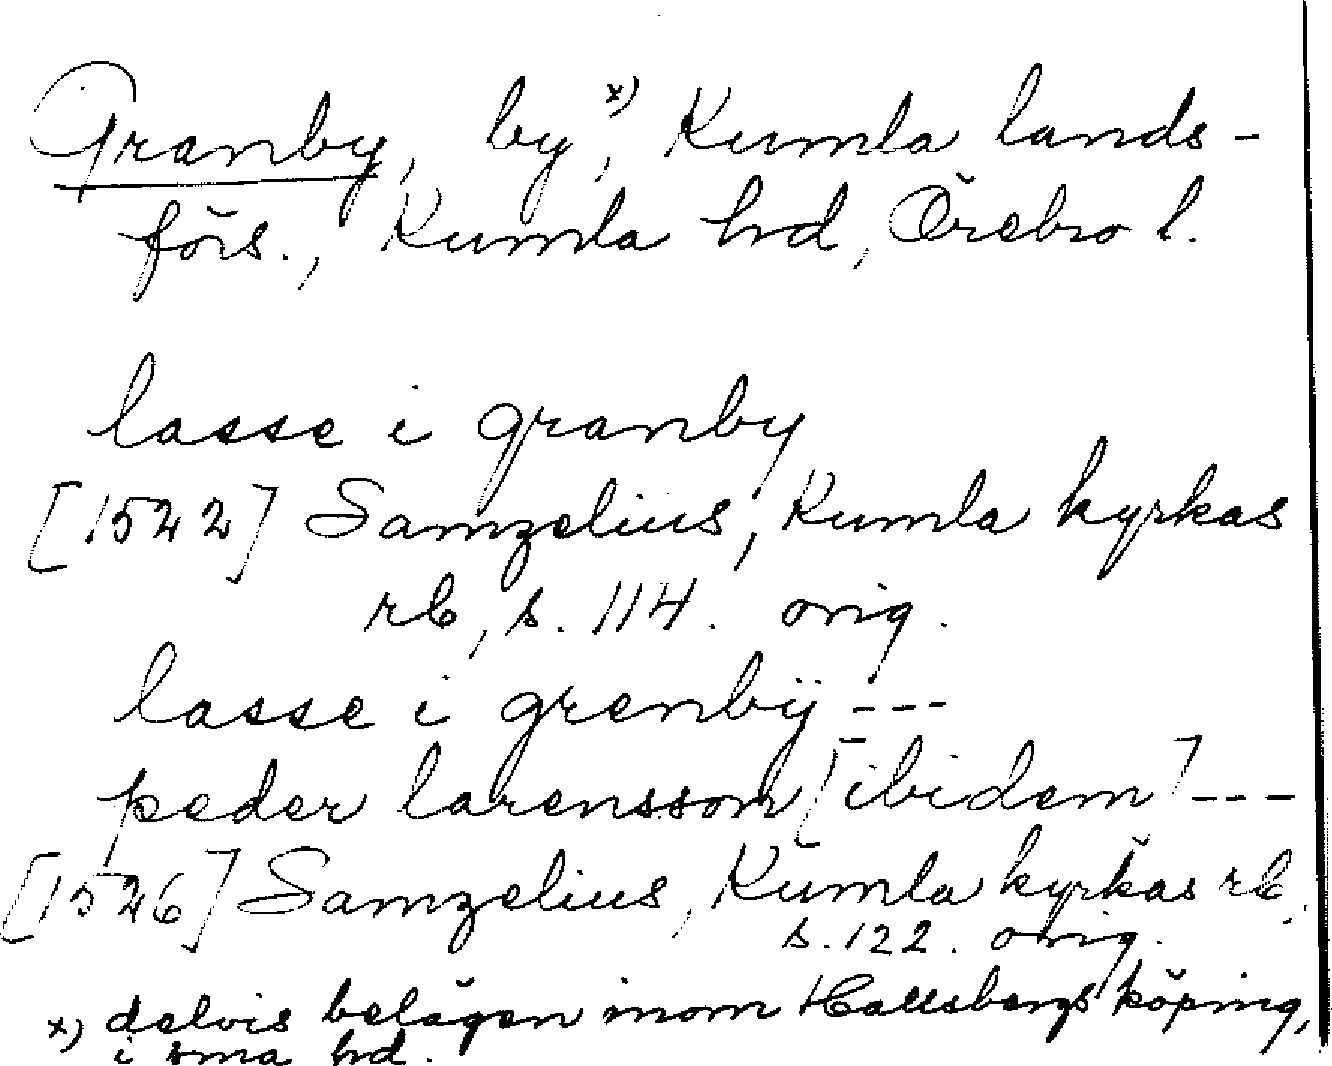 Granby, by x), Kumla lands-
förs., Kumla hd, Örebro l.
lasse i granby
[1522] Samzelius, Kumla kyrkas
rb, s. 114. orig.
lasse i grenbÿ ---
peder larensson [ibidem] ---
[1526] Samzelius, Kumla kyrkas rb,
s. 122. orig.
x) delvis belägen inom Hallsbergs köping,
i sma hd.